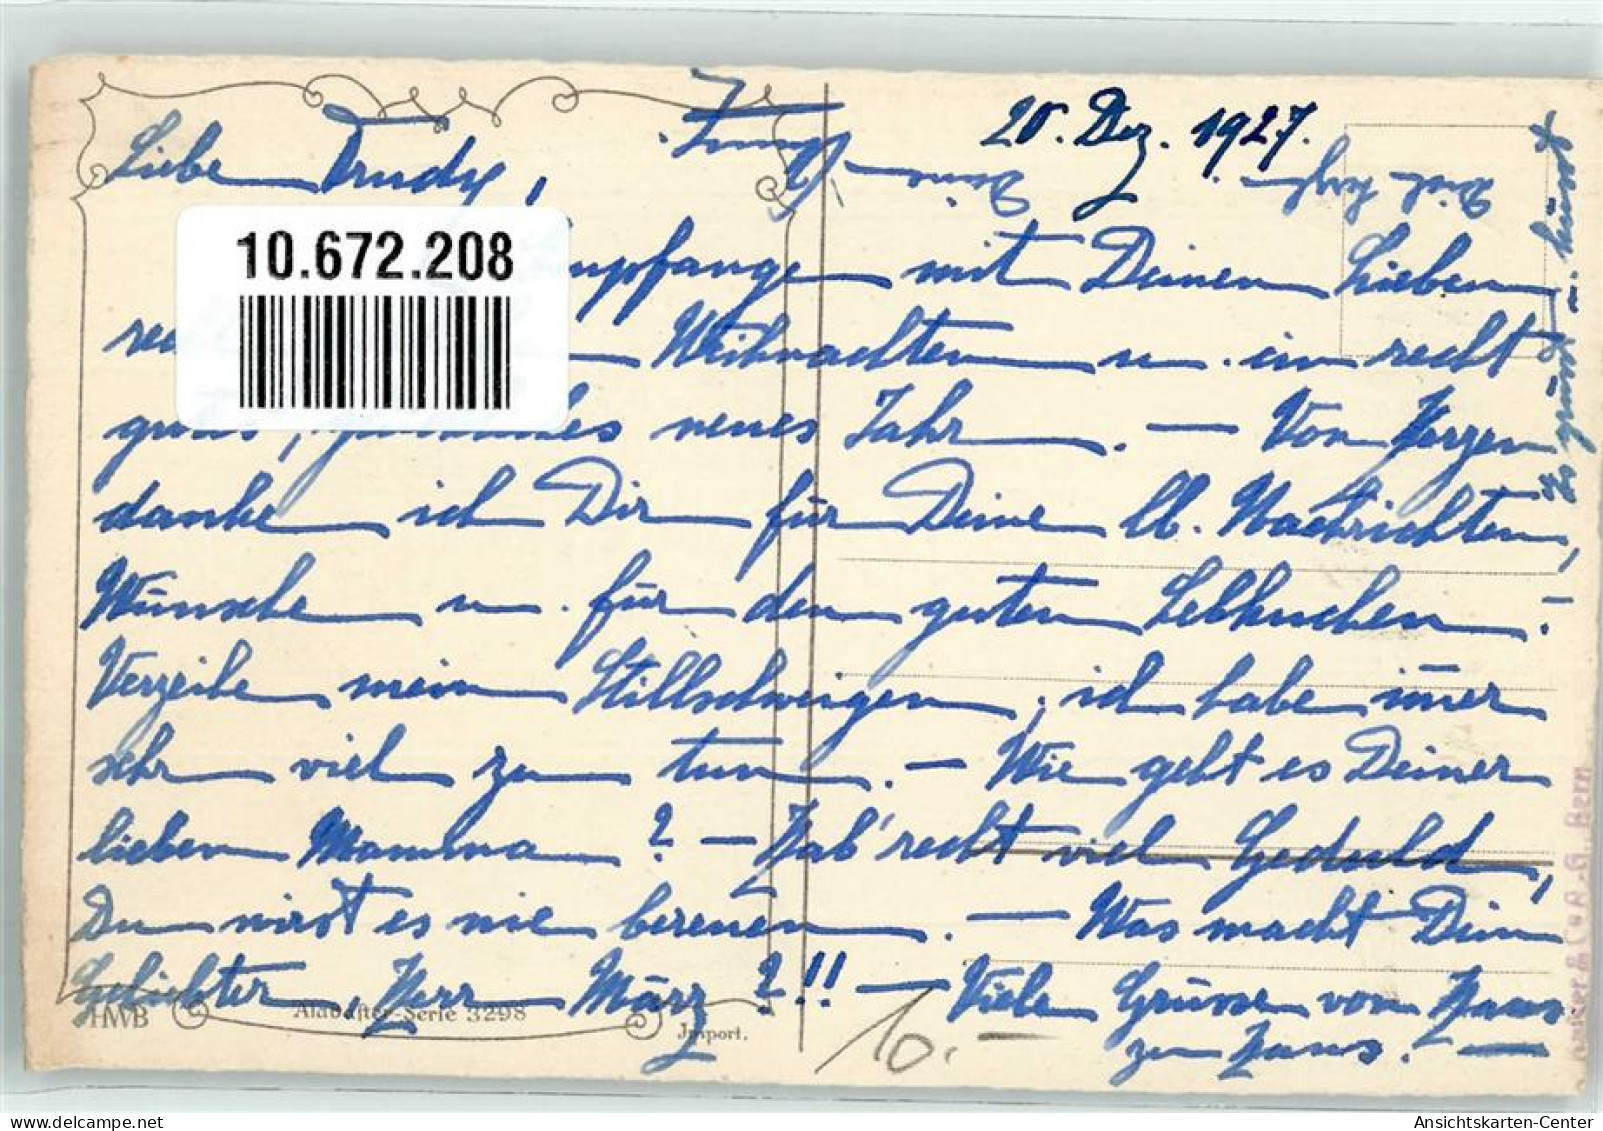 20. Dez. 1927.
Liebe Trudy,
10.672.208
mpfange mit Deinen Lieben
Weihnachten u. ein recht
neues Jahr. — Von Herzen
danke ich Dir für Deine lb. Nachrichten,
Wünsche u. für den guten Lebkuchen. —
Verzeihe mein Stillschweigen, ich habe im̅er
sehr viel zu tun. — Wie geht es Deiner
lieben Mamma? — Hab' recht viel Geduld,
Du wirst es nie bereuen. — Was macht Dein
Geliebter, Herr März?!! — Viele Grüsse von Haus
zu Haus. —
Es grüsst u. küsst
Deine
HWB
Alabaster-Serie 3298
Import.
10.—
Ansichtskarten-Center